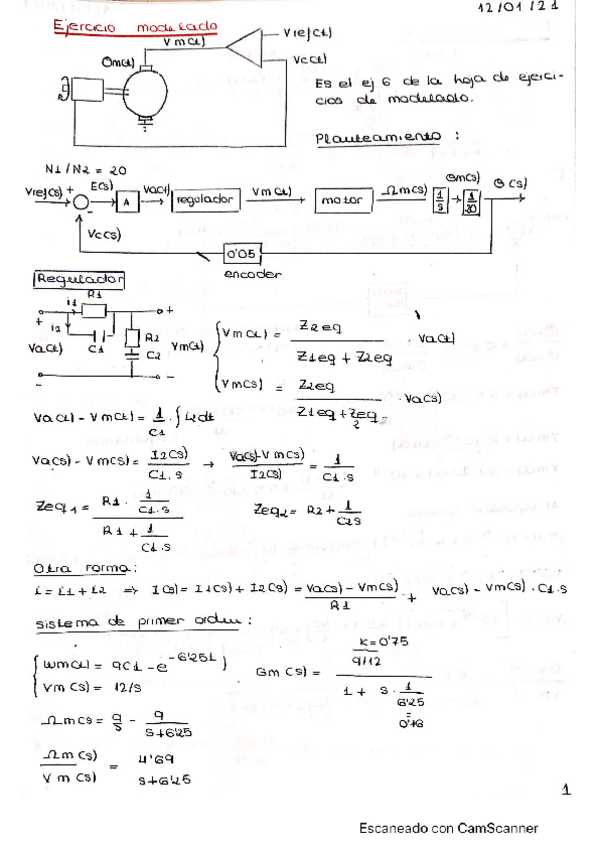 12/01/21
Ejercicio modelado
Vm(t)
Vref(t)
Vc(t)
Θm(t)
Es el ej 6 de la hoja de ejerci-
cios de modelado.
Planteamiento :
N1/N2 = 20
Vref(s) + E(s) Va(t) Vm(t) Ωm(s) Θm(s) Θ(s)
- A regulador motor 1/s 1/20
Vc(s)
0'05
encoder
Regulador
R1
i1
+ i2 C1 R2 C2 +
Va(t) Vm(t)
- -
Vm(t) = Z2eq / (Z1eq + Z2eq) · Va(t)
Vm(s) = Z2eq / (Z1eq + Zeq2) · Va(s)
Va(t) - Vm(t) = 1/C1 · ∫ i2 dt
Va(s) - Vm(s) = I2(s) / C1.s → Va(s)-Vm(s) / I2(s) = 1 / C1.s
Zeq1 = R1 · 1/C1.s / R1 + 1/C1.s
Zeq2 = R2 + 1/C2s
Otra forma:
i = i1 + i2 => I(s) = I1(s) + I2(s) = Va(s) - Vm(s) / R1 + Va(s) - Vm(s) · C1.s
sistema de primer orden :
wm(t) = 9(1 - e^-6'25t)
Vm(s) = 12/s
Gm(s) = K=0'75 9/12 / 1 + s · 1/6'25 = 0'16
Ωm(s = 9/s - 9/s+6'25
Ωm(s) / Vm(s) = 4'69 / s+6'25
1
Escaneado con CamScanner